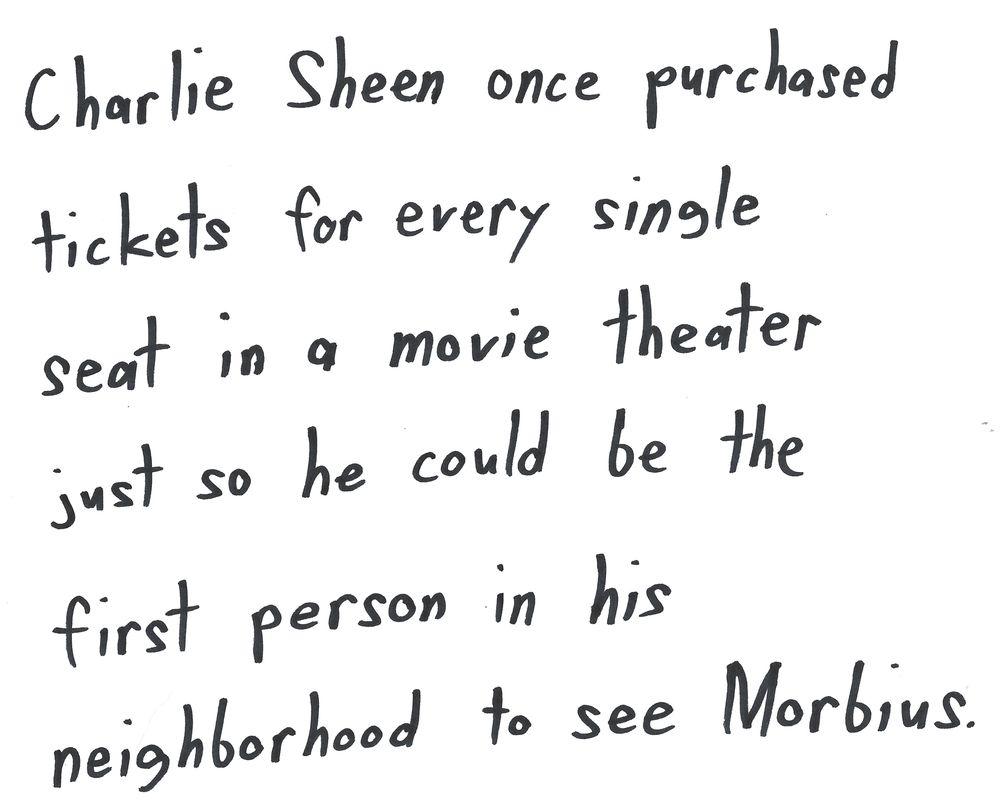 Charlie Sheen once purchased
tickets for every single
seat in a movie theater
just so he could be the
first person in his
neighborhood to see Morbius.